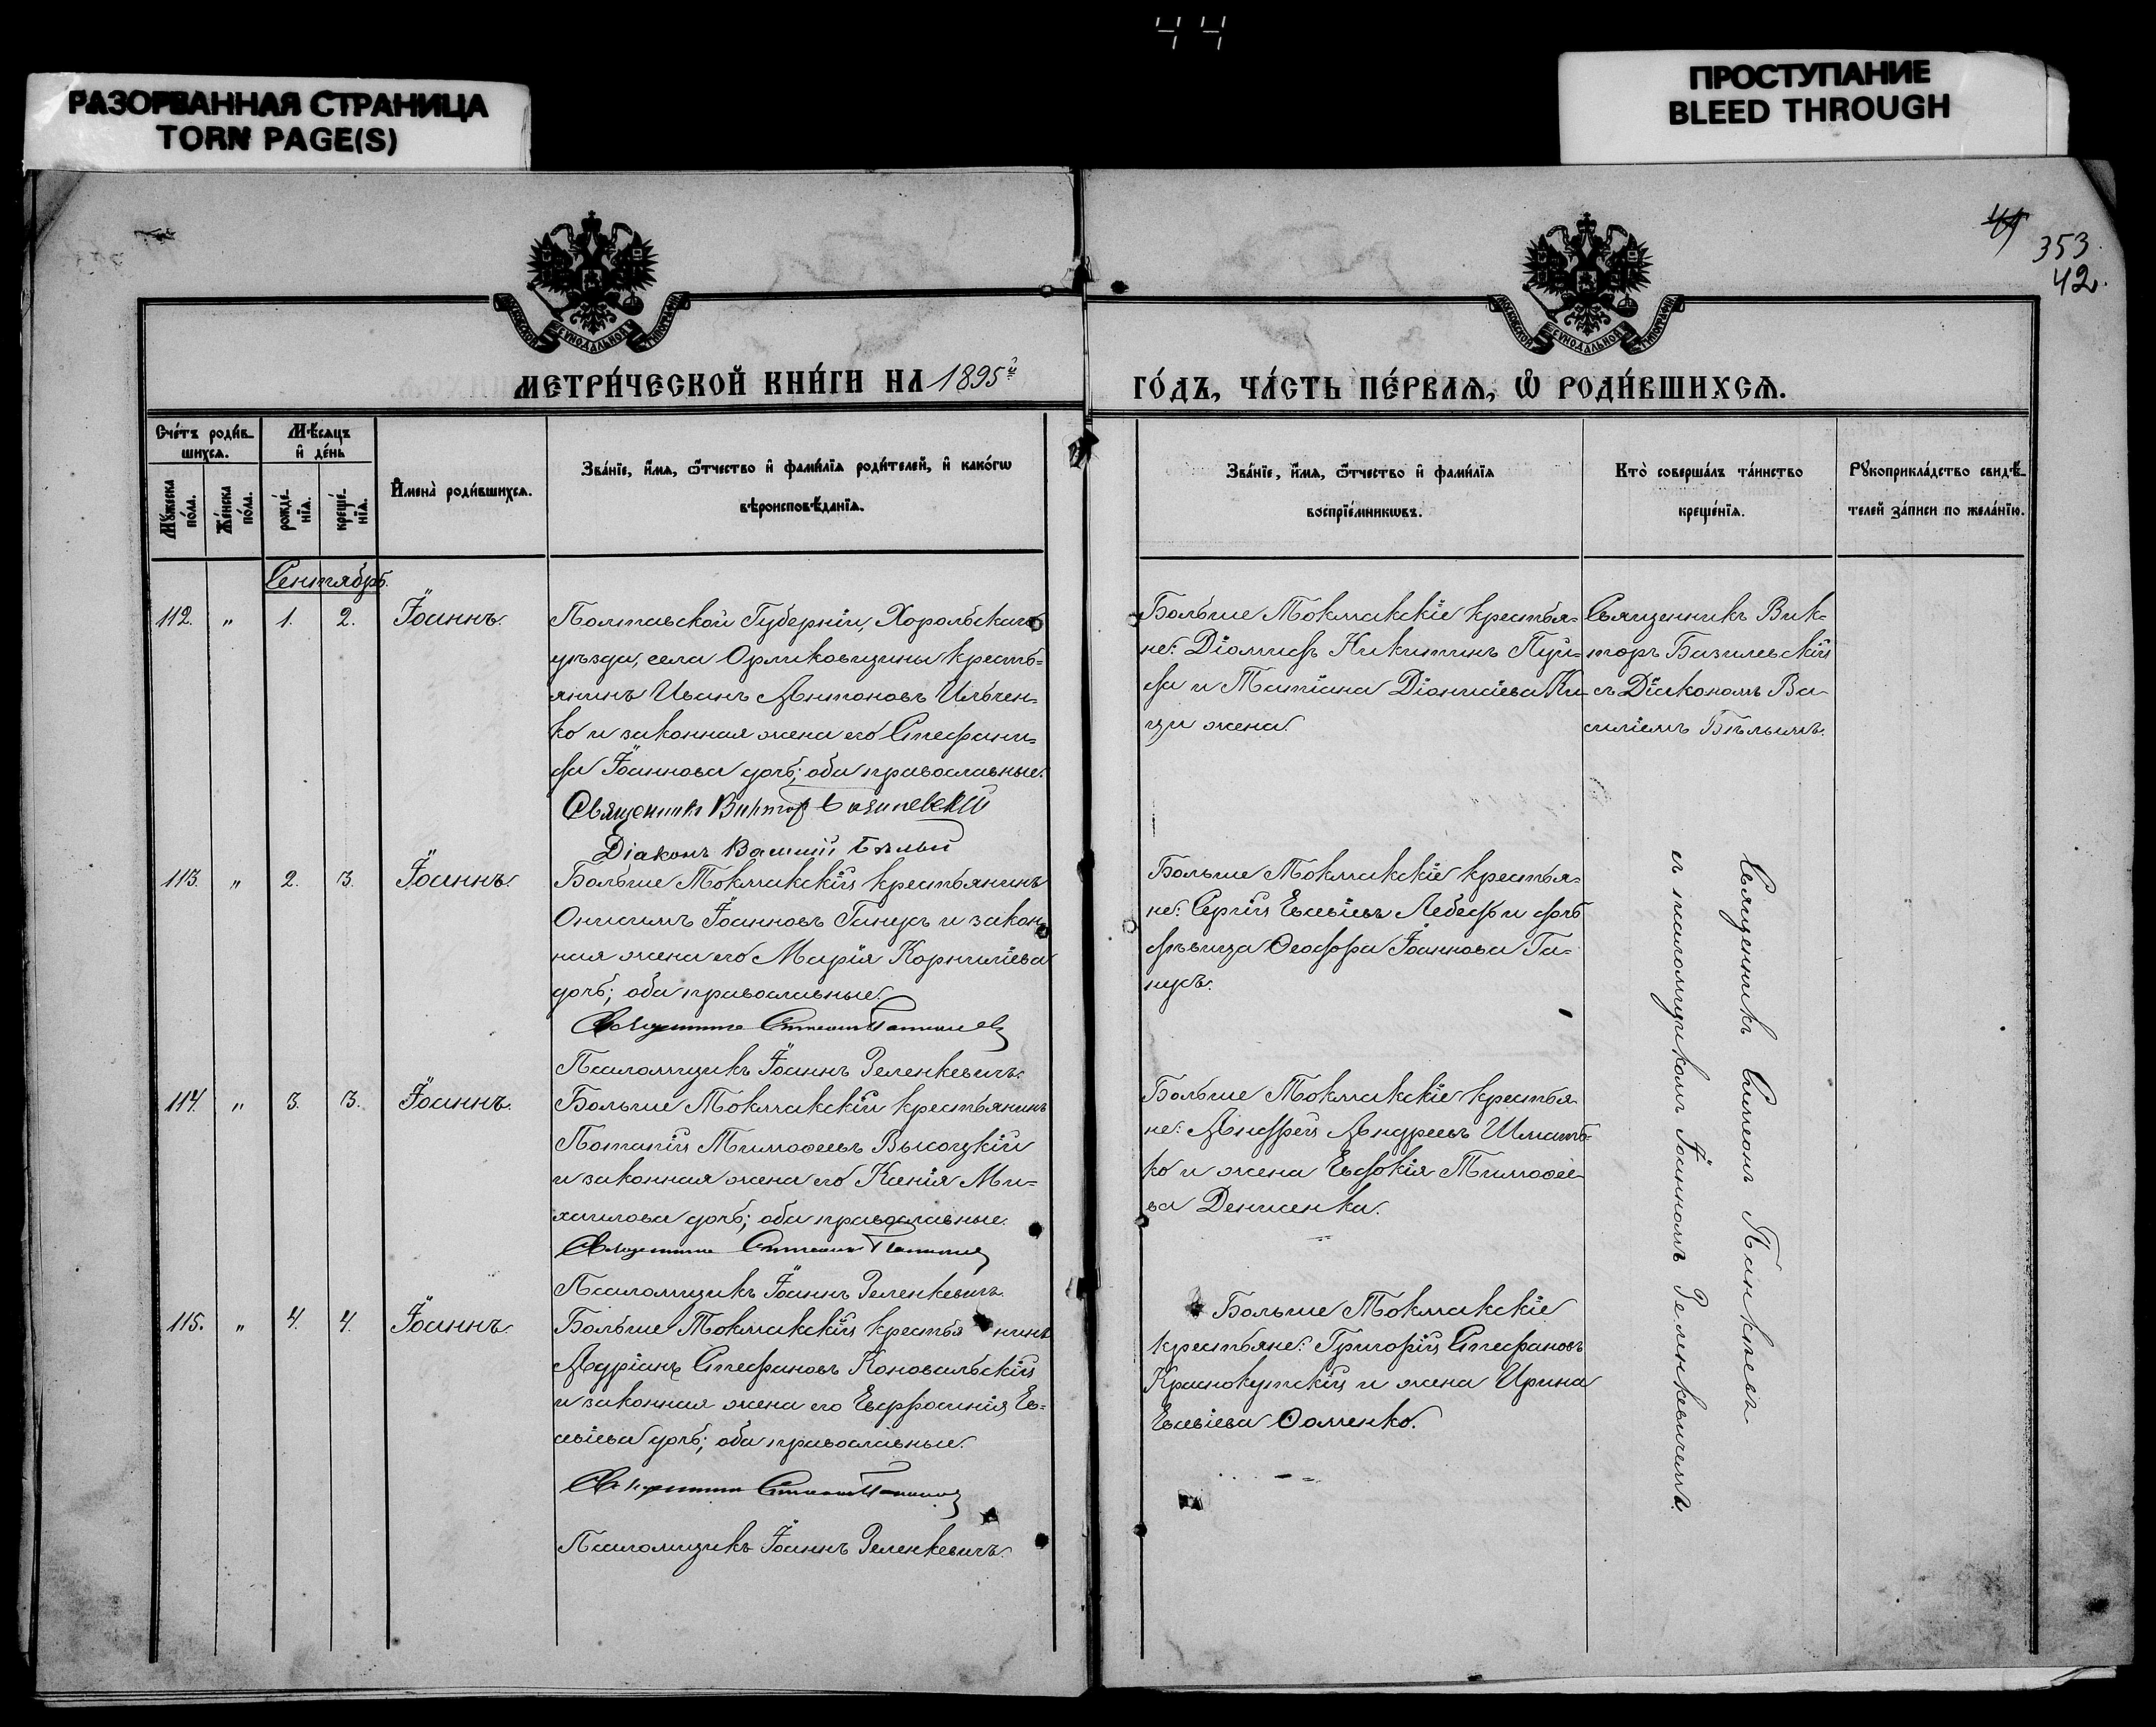 44
РАЗОРВАННАЯ СТРАНИЦА
TORN PAGE(S)
ПРОСТУПАНИЕ
BLEED THROUGH
353
42.
МОСКОВСКОЙ СѴНОДАЛЬНОЙ ТИПОГРАФІИ
МОСКОВСКОЙ СѴНОДАЛЬНОЙ ТИПОГРАФІИ
МЕТРИ́ЧЕСКОЙ КНИ́ГИ НА 1895й
ГО́ДЪ, ЧА́СТЬ ПЕ́РВАѦ, Ѡ҆ РОДИ́ВШИХСѦ.
Сче́тъ роди́в-
шихсѧ.
Мѣ́сѧцъ
и҆ де́нь
Мꙋ́жеска
по́ла.
Же́нска
по́ла.
рожде́-
нїѧ.
креще́-
нїѧ.
И҆мена̀ роди́вшихсѧ.
Зва́нїе, и҆́мѧ, ѻ҆́тчество и҆ фами́лїѧ роди́телей, и҆ како́гѡ
вѣроисповѣ́данїѧ.
Зва́нїе, и҆́мѧ, ѻ҆́тчество и҆ фами́лїѧ
воспрїе́мникѡвъ.
Кто̀ соверша́лъ та́инство
креще́нїѧ.
Рꙋкоприкла́дство свидѣ́-
телей за́писи по жела́нїю.
Сентябрь.
112. " 1. 2. Іоаннъ.
Полтавской Губерніи, Хорольскаго
уѣзда, села Орликовщины кресть=
янинъ Иванъ Антоновъ Ильчен-
ко и законная жена его Стефани=
да Іоаннова дочь; оба православные.
Священникъ Викторъ Базилевскій
Діаконъ Василій Бѣлый
Больше Токмакскіе крестья-
не: Діомидъ Никитинъ
и Татіана Діонисіева
жена.
Священникъ Вик-
торъ Базилевскій
съ Діакономъ Ва-
силіемъ Бѣлымъ.
113. " 2. 3. Іоаннъ.
Больше Токмакскій крестьянинъ
Онисимъ Іоанновъ Ганусъ и закон-
ная жена его Марія Корниліева
дочь; оба православные.
Священникъ Симеонъ
Псаломщикъ Іоаннъ Зеленкевичъ.
Больше Токмакскіе крестья=
не: Сергій Евсѣіевъ Лебедь и дочь
дѣвица Ѳеодора Іоаннова Га-
нусъ.
114. " 3. 3. Іоаннъ.
Больше Токмакскій крестьянинъ
Потапій Тимоѳеевъ Высоцкій
и законная жена его Ксенія Ми=
хаилова дочь; оба православные.
Священникъ Симеонъ
Псаломщикъ Іоаннъ Зеленкевичъ.
Больше Токмакскіе крестья-
не: Андрей Андреевъ Шмать-
ко и жена Евдокія Тимоѳее-
ва Денисенка.
115. " 4. 4. Іоаннъ.
Больше Токмакскій крестьянинъ
Адріанъ Стефановъ Коновальскій
и законная жена его Евфросинія Ев-
сѣіева дочь; оба православные.
Священникъ Симеонъ
Псаломщикъ Іоаннъ Зеленкевичъ.
Больше Токмакскіе
крестьяне: Григорій Стефановъ
Краснокутскій и жена Ирина
Евсѣіева Ѳоменко.
Священникъ Симеонъ
съ псаломщикомъ Іоанномъ Зеленкевичемъ.